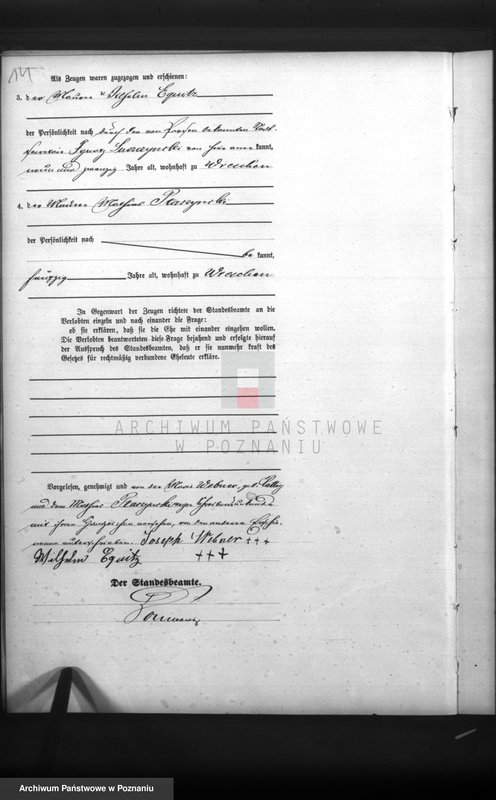 14
Als Zeugen waren zugezogen und erschienen:
3. der Maurer Wilhelm Equitz
der Persönlichkeit nach durch den von Person bekannten
von hier anerkannt,
neun und zwanzig Jahre alt, wohnhaft zu Wreschen
4. der Maurer Mathias
der Persönlichkeit nach
bekannt,
fünfzig Jahre alt, wohnhaft zu Wreschen
In Gegenwart der Zeugen richtete der Standesbeamte an die
Verlobten einzeln und nach einander die Frage:
ob sie erklären, daß sie die Ehe mit einander eingehen wollen.
Die Verlobten beantworteten diese Frage bejahend und erfolgte hierauf
der Ausspruch des Standesbeamten, daß er sie nunmehr kraft des
Gesetzes für rechtmäßig verbundene Eheleute erkläre.
ARCHIWUM PAŃSTWOWE
W POZNANIU
Vorgelesen, genehmigt und von der Marie Webner, geb.
und dem Mathias wegen Schreibensunkunde
mit ihren Handzeichen versehen, von den anderen
unterschrieben. Joseph Webner +++
Wilhelm Equitz +++
Der Standesbeamte.
Archiwum Państwowe w Poznaniu